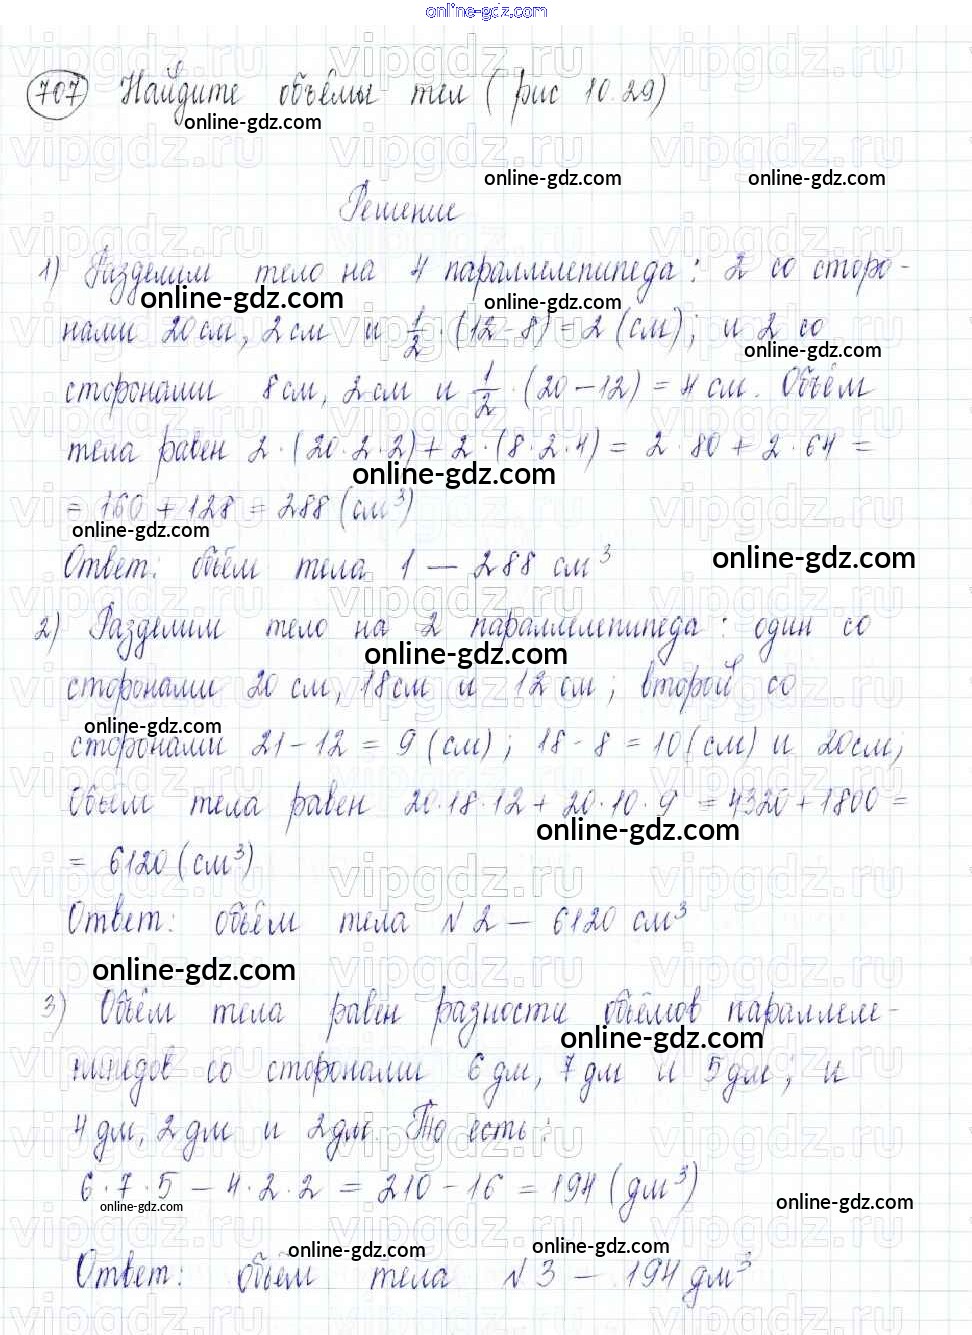 online-gdz.com
707 Найдите объёмы тел (рис 10.29)
online-gdz.com
online-gdz.com online-gdz.com
Решение
1) Разделим тело на 4 параллелепипеда: 2 со сторо-
online-gdz.com online-gdz.com
нами 20 см, 2 см и 1/2 · (12 - 8) = 2 (см); и 2 со
online-gdz.com
сторонами 8 см, 2 см и 1/2 · (20 - 12) = 4 см. Объём
тела равен 2 · (20 · 2 · 2) + 2 · (8 · 2 · 4) = 2 · 80 + 2 · 64 =
online-gdz.com
= 160 + 128 = 288 (см³)
online-gdz.com
Ответ: объём тела 1 — 288 см³
online-gdz.com
2) Разделим тело на 2 параллелепипеда: один со
online-gdz.com
сторонами 20 см, 18 см и 12 см; второй со
online-gdz.com
сторонами 21 - 12 = 9 (см); 18 - 8 = 10 (см) и 20 см;
Объём тела равен 20 · 18 · 12 + 20 · 10 · 9 = 4320 + 1800 =
online-gdz.com
= 6120 (см³)
Ответ: объём тела №2 — 6120 см³
online-gdz.com
3) Объём тела равен разности объёмов параллеле-
online-gdz.com
пипедов со сторонами 6 дм, 7 дм и 5 дм; и
4 дм, 2 дм и 2 дм. То есть:
6 · 7 · 5 - 4 · 2 · 2 = 210 - 16 = 194 (дм³)
online-gdz.com online-gdz.com
online-gdz.com online-gdz.com
Ответ: объём тела №3 — 194 дм³